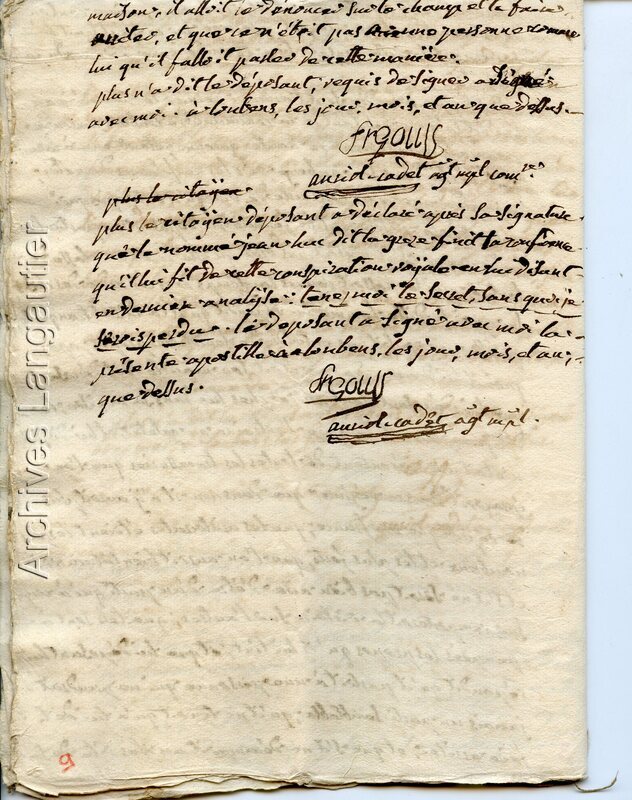 maison, il alloit le dénoncer sur le champ et le faire
et que ce n'étoit pas une personne comme
lui qu'il falloit parler de cette manière.
plus n'a dit le déposant, requis de signer a signé
avec moi. à loubens, les jour, mois, et an que dessus.
frgouss
auriol-cadet agt mpl comre.
plus le citoyen.
plus le citoyen déposant a déclaré après sa signature
que le nommé jean huc dit finit la
qu'il lui fit de cette conspiration royale en lui disant
en dernière analyse: tenez moi le secret, sans quoi je
serois perdu. le déposant a signé avec moi la
présente apostille à loubens, les jour, mois, et an,
que dessus.
frgouss
auriol-cadet agt mpl.
Archives Langautier
9